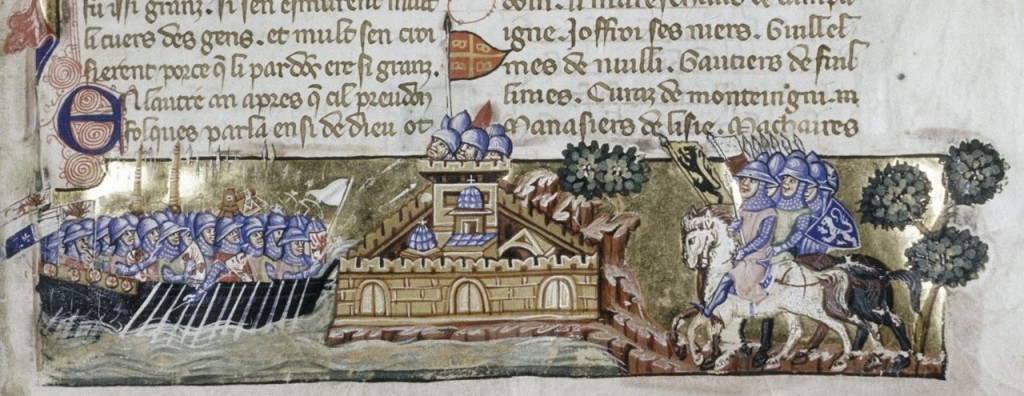 fu issi granz. Si sen esmurent mult
li cuers des gens. et mult sen croi
sierent porce q̃ li pardõs ere si granz.
En lautre an apres q̃ cil preudon
folques parla ensi de dieu ot
doin. li mareschaus de campa
igne. Joffroi ses niers. Guillel
mes de nuilli. Gautiers de fuil
limes. Euraz de monteingni.
Manasiers de lisle. Machaires